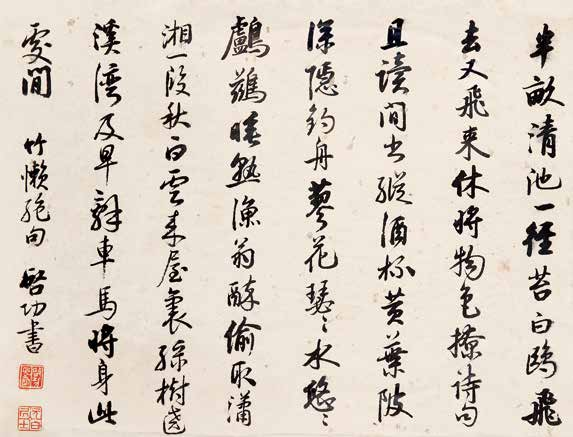 半畝清池一徑苔白鷗飛
去又飛來休將物色撩詩句
且讀閒書縱酒杯黃葉陂
深隱釣舟蓼花瑟〻水悠〻
鸕鶿睡熟漁翁醉偷取瀟
湘一段秋白雲來屋裏綠樹遶
溪灣及早辭車馬將身此
處閒 竹懶絕句 啓功書